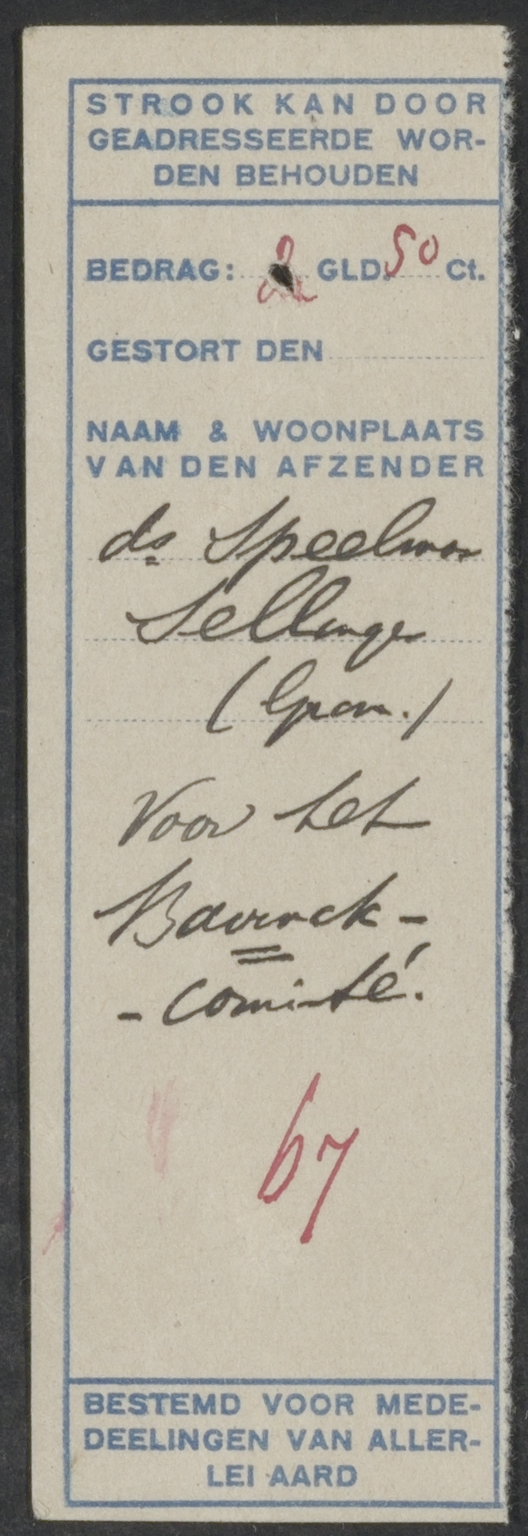 STROOK KAN DOOR
GEADRESSEERDE WOR-
DEN BEHOUDEN
BEDRAG: 2 GLD. 50 Ct.
GESTORT DEN
NAAM & WOONPLAATS
VAN DEN AFZENDER
ds Speelman
Sellingen
(Gron.)
Voor het
Bavinck-
-comité.
67
BESTEMD VOOR MEDE-
DEELINGEN VAN ALLER-
LEI AARD